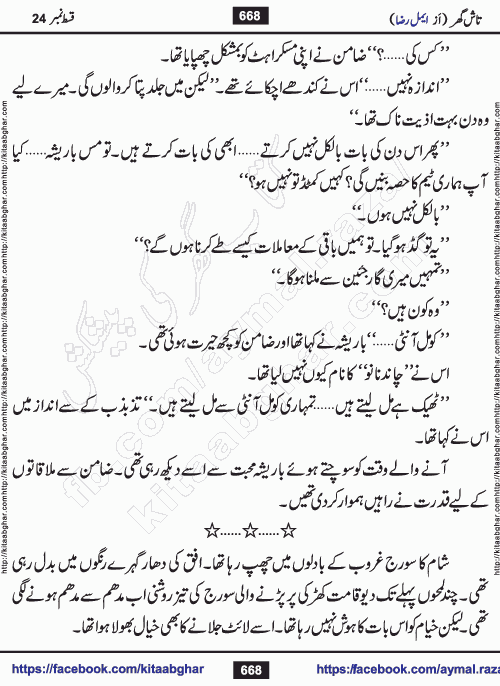 قسط نمبر 24
668
تاش گھر (از ایمل رضا)
’’کس کی......؟‘‘ ضامن نے اپنی مسکراہٹ کو بمشکل چھپایا تھا۔
’’اندازہ نہیں......‘‘ اس نے کندھے اچکائے تھے۔ ’’لیکن میں جلد پتا کروا لوں گی۔ میرے لیے
وہ دن بہت اذیت ناک تھا۔‘‘
’’پھر اس دن کی بات بالکل نہیں کرتے...... ابھی کی بات کرتے ہیں۔ تو مس باریشہ...... کیا
آپ ہماری ٹیم کا حصہ بنیں گی؟ کہیں کمٹڈ تو نہیں ہو؟‘‘
’’بالکل نہیں ہوں۔‘‘
’’یہ تو گڈ ہو گیا۔ تو ہمیں باقی کے معاملات کیسے طے کرنا ہوں گے؟‘‘
’’تمہیں میری گارجئین سے ملنا ہوگا۔‘‘
’’وہ کون ہیں؟‘‘
’’کومل آنٹی......‘‘ باریشہ نے کہا تھا اور ضامن کو کچھ حیرت ہوئی تھی۔
اس نے ’’چاند نانو‘‘ کا نام کیوں نہیں لیا تھا۔
’’ٹھیک ہے مل لیتے ہیں...... تمہاری کومل آنٹی سے مل لیتے ہیں۔‘‘ تذبذب کے سے انداز میں
اس نے کہا تھا۔
آنے والے وقت کو سوچتے ہوئے باریشہ محبت سے اسے دیکھ رہی تھی۔ ضامن سے ملاقاتوں
کے لیے قدرت نے راہیں ہموار کر دی تھیں۔
☆......☆......☆
شام کا سورج غروب کے بادلوں میں چھپ رہا تھا۔ افق کی دھار گہرے رنگوں میں بدل رہی
تھی۔ چند لمحوں پہلے تک دیو قامت کھڑکی پر پڑنے والی سورج کی تیز روشنی اب مدھم سے مدھم ہونے لگی
تھی۔ لیکن خیام کو اس بات کا ہوش نہیں رہا تھا۔ اسے لائٹ جلانے کا بھی خیال بھولا ہوا تھا۔
https://facebook.com/kitaabghar
668
https://facebook.com/aymal.raza
http://kitaabghar.com
fb.com/aymal.raza
kitaabghar.com
کتاب گھر کی پیشکش